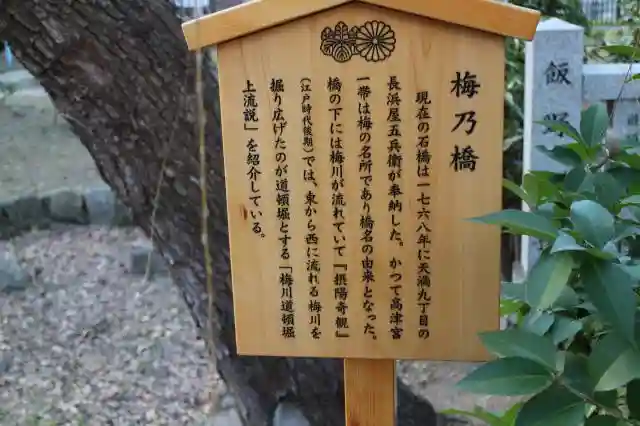 梅乃橋
現在の石橋は一七六八年に天満九丁目の
長浜屋五兵衛が奉納した。かつて高津宮
一帯は梅の名所であり橋名の由来となった。
橋の下には梅川が流れていて『摂陽奇観』
(江戸時代後期)では、東から西に流れる梅川を
掘り広げたのが道頓堀とする「梅川道頓堀
上流説」を紹介している。
飯